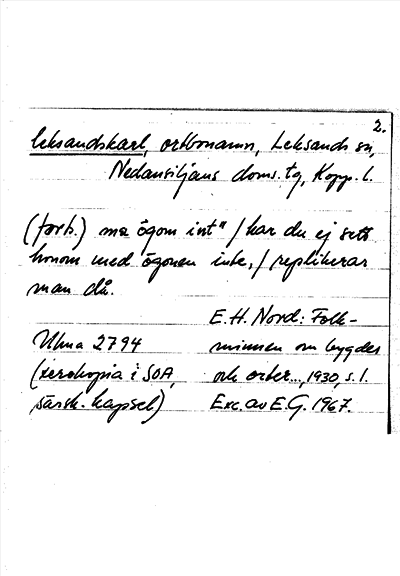 2.
leksandskarl, ortbonamn, Leksands sn,
Nedansiljans doms. tg, Kopp. l.
(forts.) mä ögom int" / har du ej sett
honom med ögonen inte, / replikerar
man då.
E. H. Nord: Folk-
Ulma 2794 minnen om bygder
(xerokopia i SOA, och orter..., 1930, s. 1.
särsk. kapsel) Exc. av E.G. 1967.